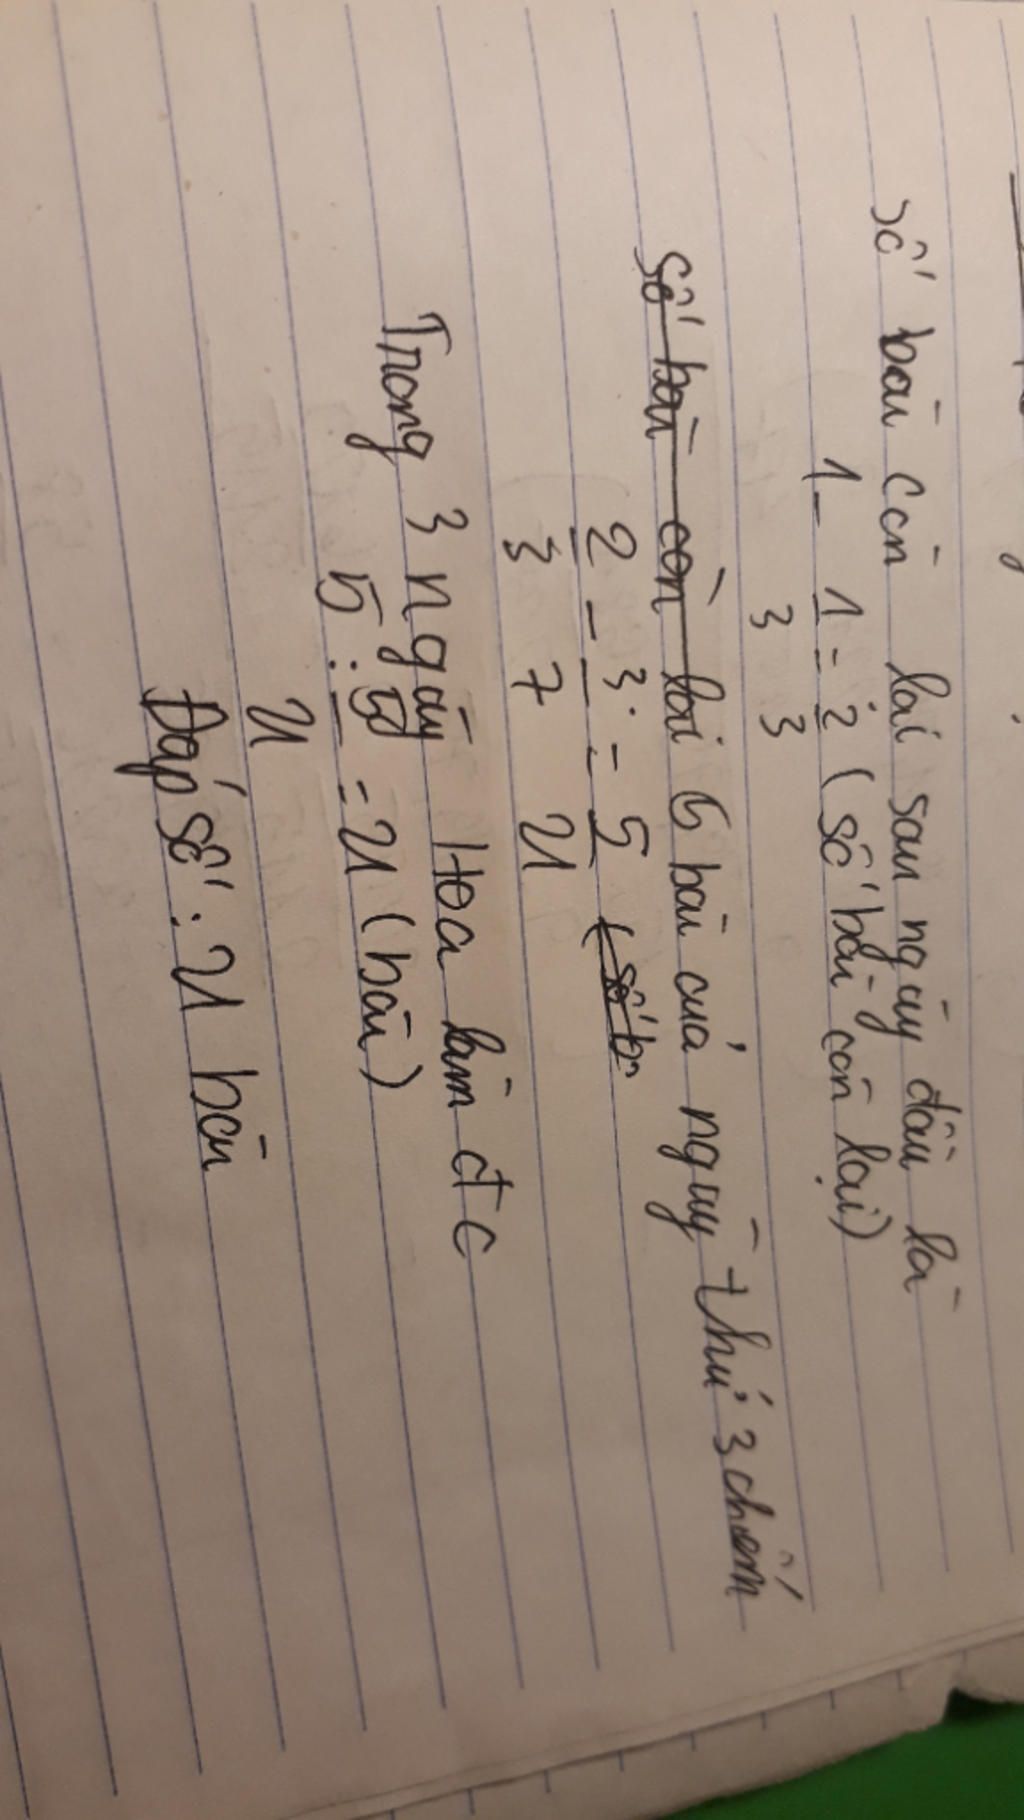 số bài còn lại sau ngày đầu là
1 - 1/3 = 2/3 (số bài còn lại)
số bài còn lại 5 bài của ngày thứ 3 chiếm
2/3 - 3/7 = 5/21 (số b
Trong 3 ngày Hoa làm đc
5 : 5/21 = 21 (bài)
Đáp số : 21 bài